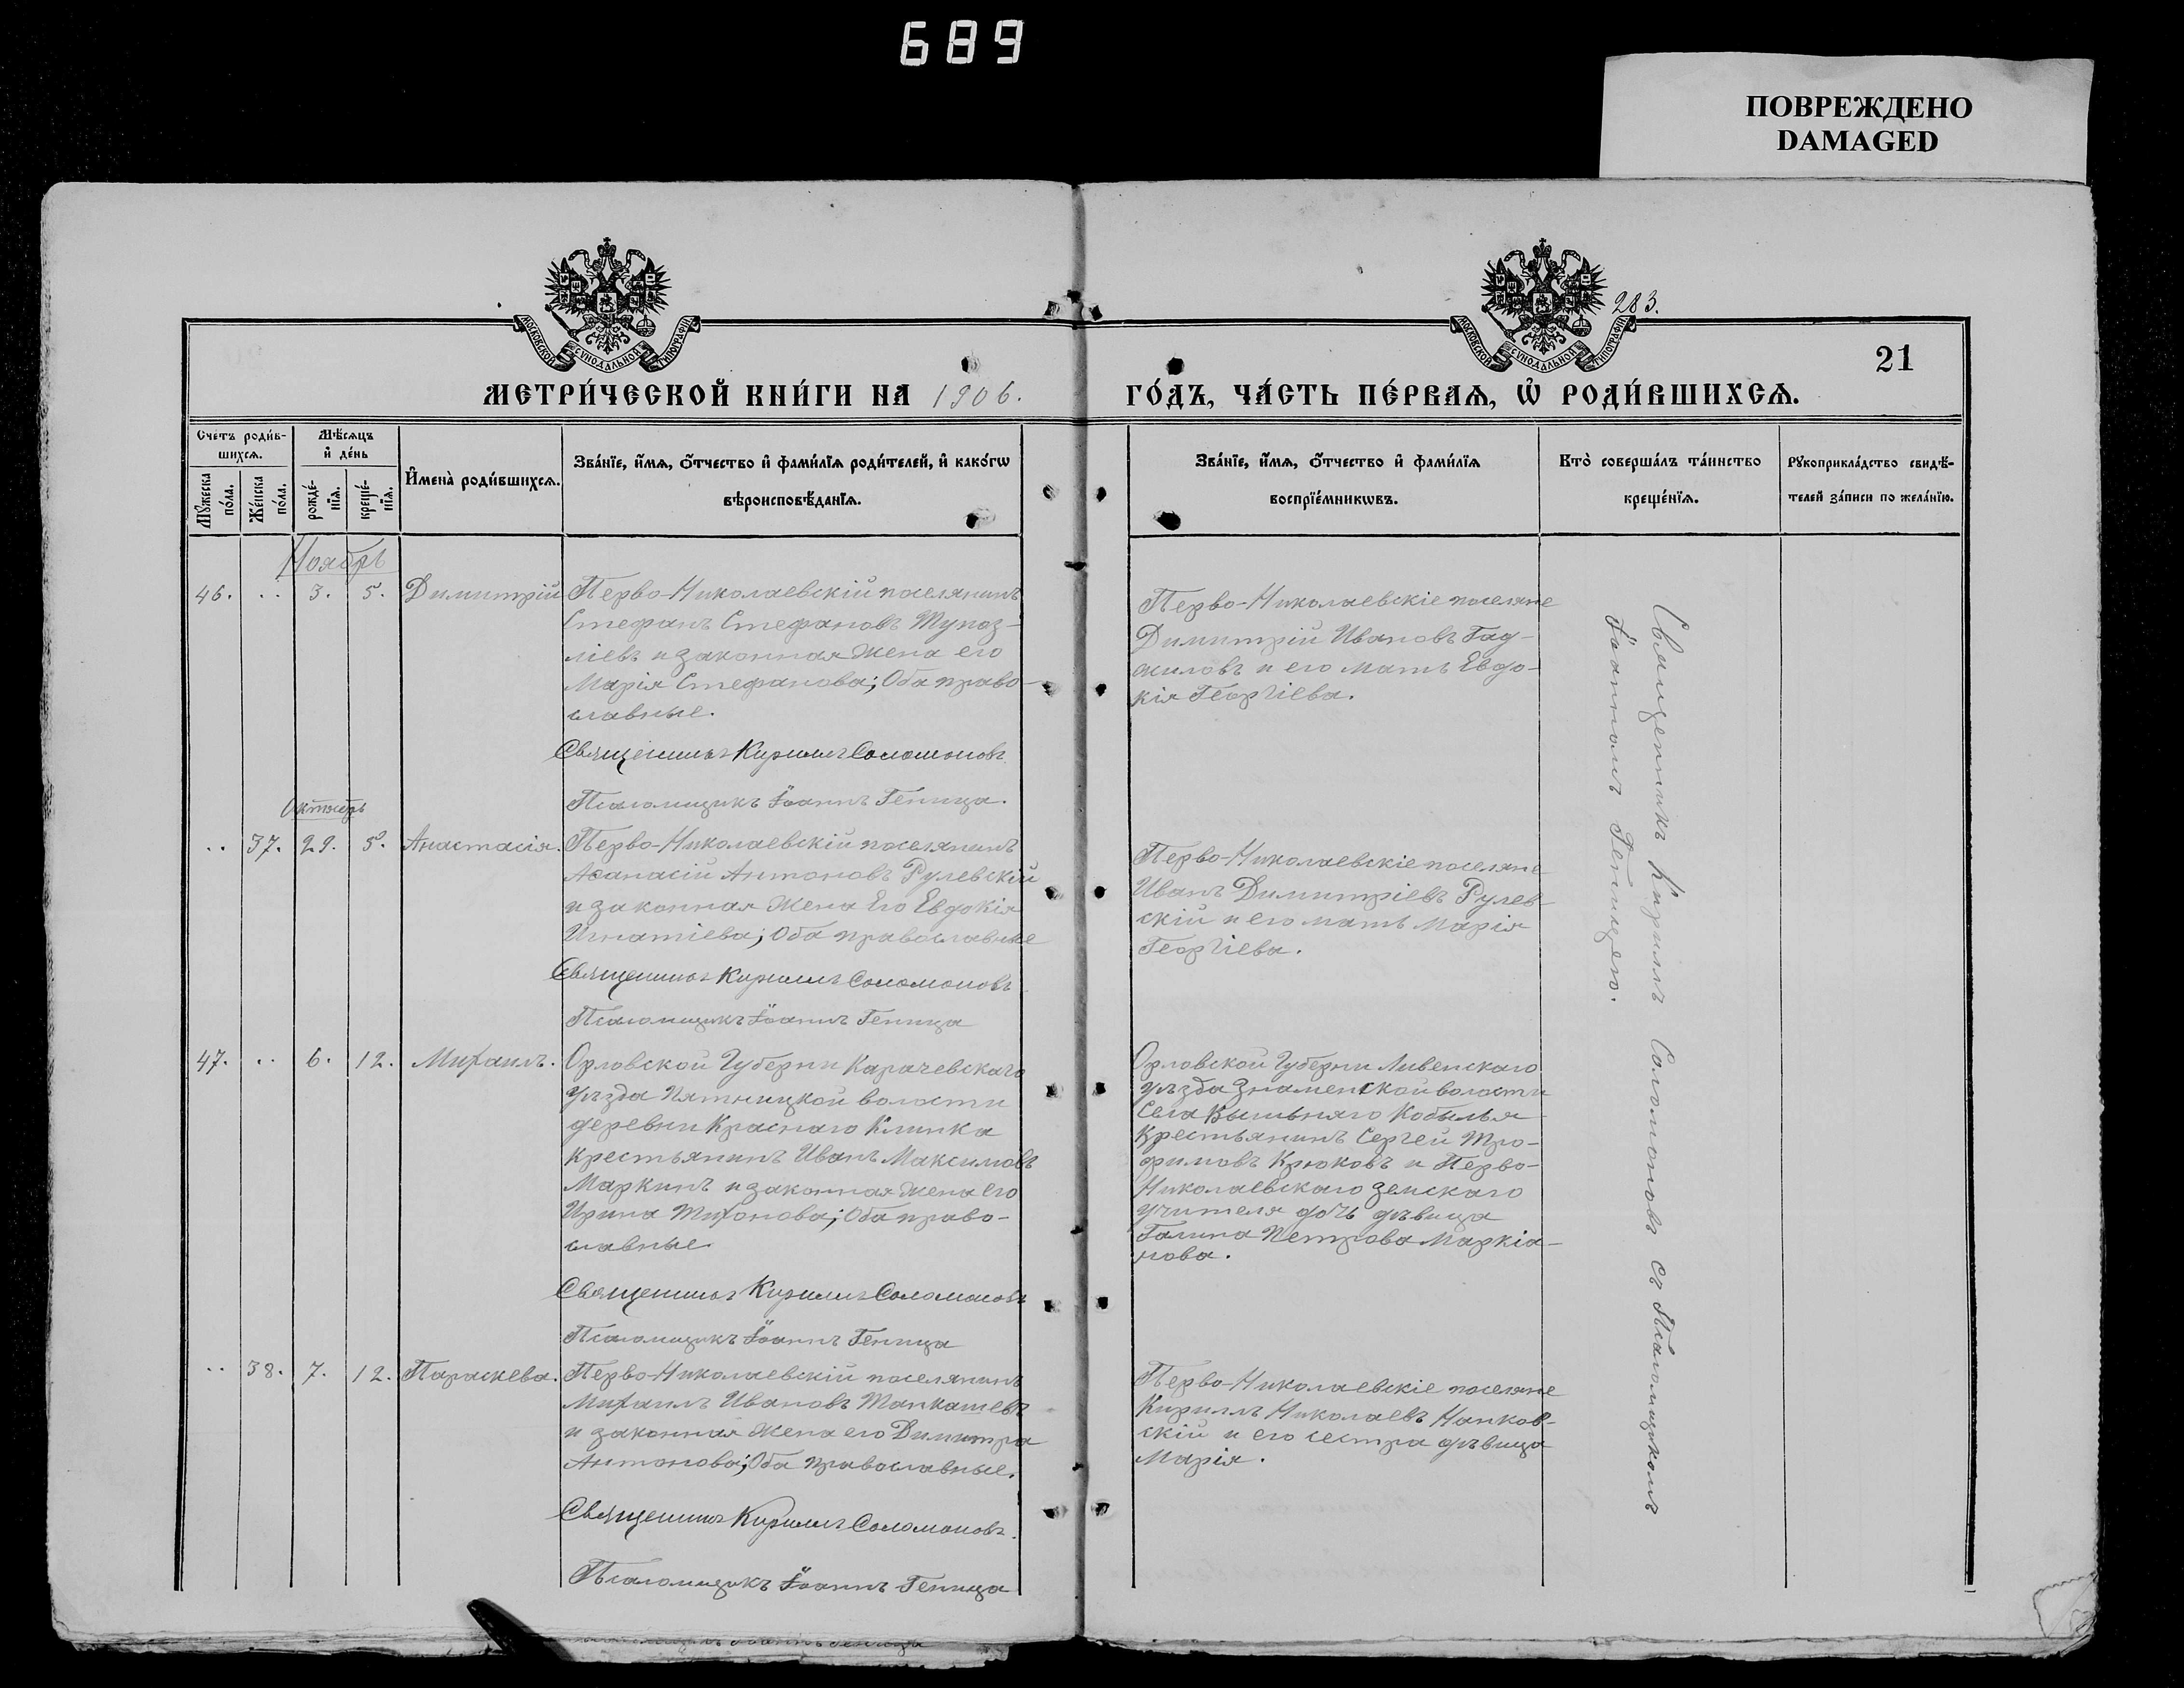 689
ПОВРЕЖДЕНО
DAMAGED
МОСКОВСКОЙ СѴНОДАЛЬНОЙ ТИПОГРАФІИ
МОСКОВСКОЙ СѴНОДАЛЬНОЙ ТИПОГРАФІИ
283.
21
МЕТРИ́ЧЕСКОЙ КНИ́ГИ НА 1906.
ГО́ДЪ, ЧА́СТЬ ПЕ́РВАѦ, Ѽ РОДИ́ВШИХСѦ.
Сче́тъ роди́в-
шихсѧ.
Мꙋ́жеска
по́ла.
Же́нска
по́ла.
Мѣ́сѧцъ
и҆ де́нь
рожде́-
нїѧ.
креще́-
нїѧ.
И҆мена̀ роди́вшихсѧ.
Зва́нїе, и҆́мѧ, ѻ҆́тчество и҆ фами́лїѧ роди́телей, и҆ како́гѡ
вѣроисповѣ́данїѧ.
Зва́нїе, и҆́мѧ, ѻ҆́тчество и҆ фами́лїѧ
воспрїе́мникѡвъ.
Кто̀ соверша́лъ та́инство
креще́нїѧ.
Рꙋкоприкла́дство свидѣ́-
телей за́писи по жела́нїю.
Ноябрь
46. .. 3. 5. Димитрій
Перво-Николаевскій поселянинъ
Стефанъ Стефановъ Тупоз-
ліевъ и законная жена его
Марія Стефанова; Оба право-
славные.
Священникъ Кириллъ Соломоновъ
Псаломщикъ Іоаннъ Геница.
Перво-Николаевскіе поселяне
Димитрій Ивановъ Гад-
жиловъ и его мать Евдо-
кія Георгіева.
Октябрь
.. 37. 29. 5. Анастасія.
Перво-Николаевскій поселянинъ
Аѳанасій Антоновъ Рулевскій
и законная жена его Евдокія
Игнатіева; Оба православные
Священникъ Кириллъ Соломоновъ
Псаломщикъ Іоаннъ Геница
Перво-Николаевскіе поселяне
Иванъ Димитріевъ Рулев-
скій и его мать Марія
Георгіева.
47. .. 6. 12. Михаилъ.
Орловской Губерни Карачевскаго
уѣзда Пятницкой волости
деревни Краснаго Клинка
крестьянинъ Иванъ Максимовъ
Маркинъ и законная жена его
Ирина Тихонова; Оба право-
славные.
Священникъ Кириллъ Соломоновъ
Псаломщикъ Іоаннъ Геница
Орловской Губерни Ливенскаго
уѣзда Знаменской волости
Села Вышняго Кобылья
Крестьянинъ Сергей Тро-
фимовъ Крюковъ и Перво-
Николаевскаго земскаго
учителя дочь дѣвица
Галина Петрова Маркіа-
нова.
.. 38. 7. 12. Параскева.
Перво-Николаевскій поселянинъ
Михаилъ Ивановъ Танкашевъ
и законная жена его Димитра
Антонова; Оба православные.
Священникъ Кириллъ Соломоновъ.
Псаломщикъ Іоаннъ Геница
Перво-Николаевскіе поселяне
Кириллъ Николаевъ Напков-
скій и его сестра дѣвица
Марія.
Священникъ Кириллъ Соломоновъ съ Псаломщикомъ
Іоанномъ Геницею.